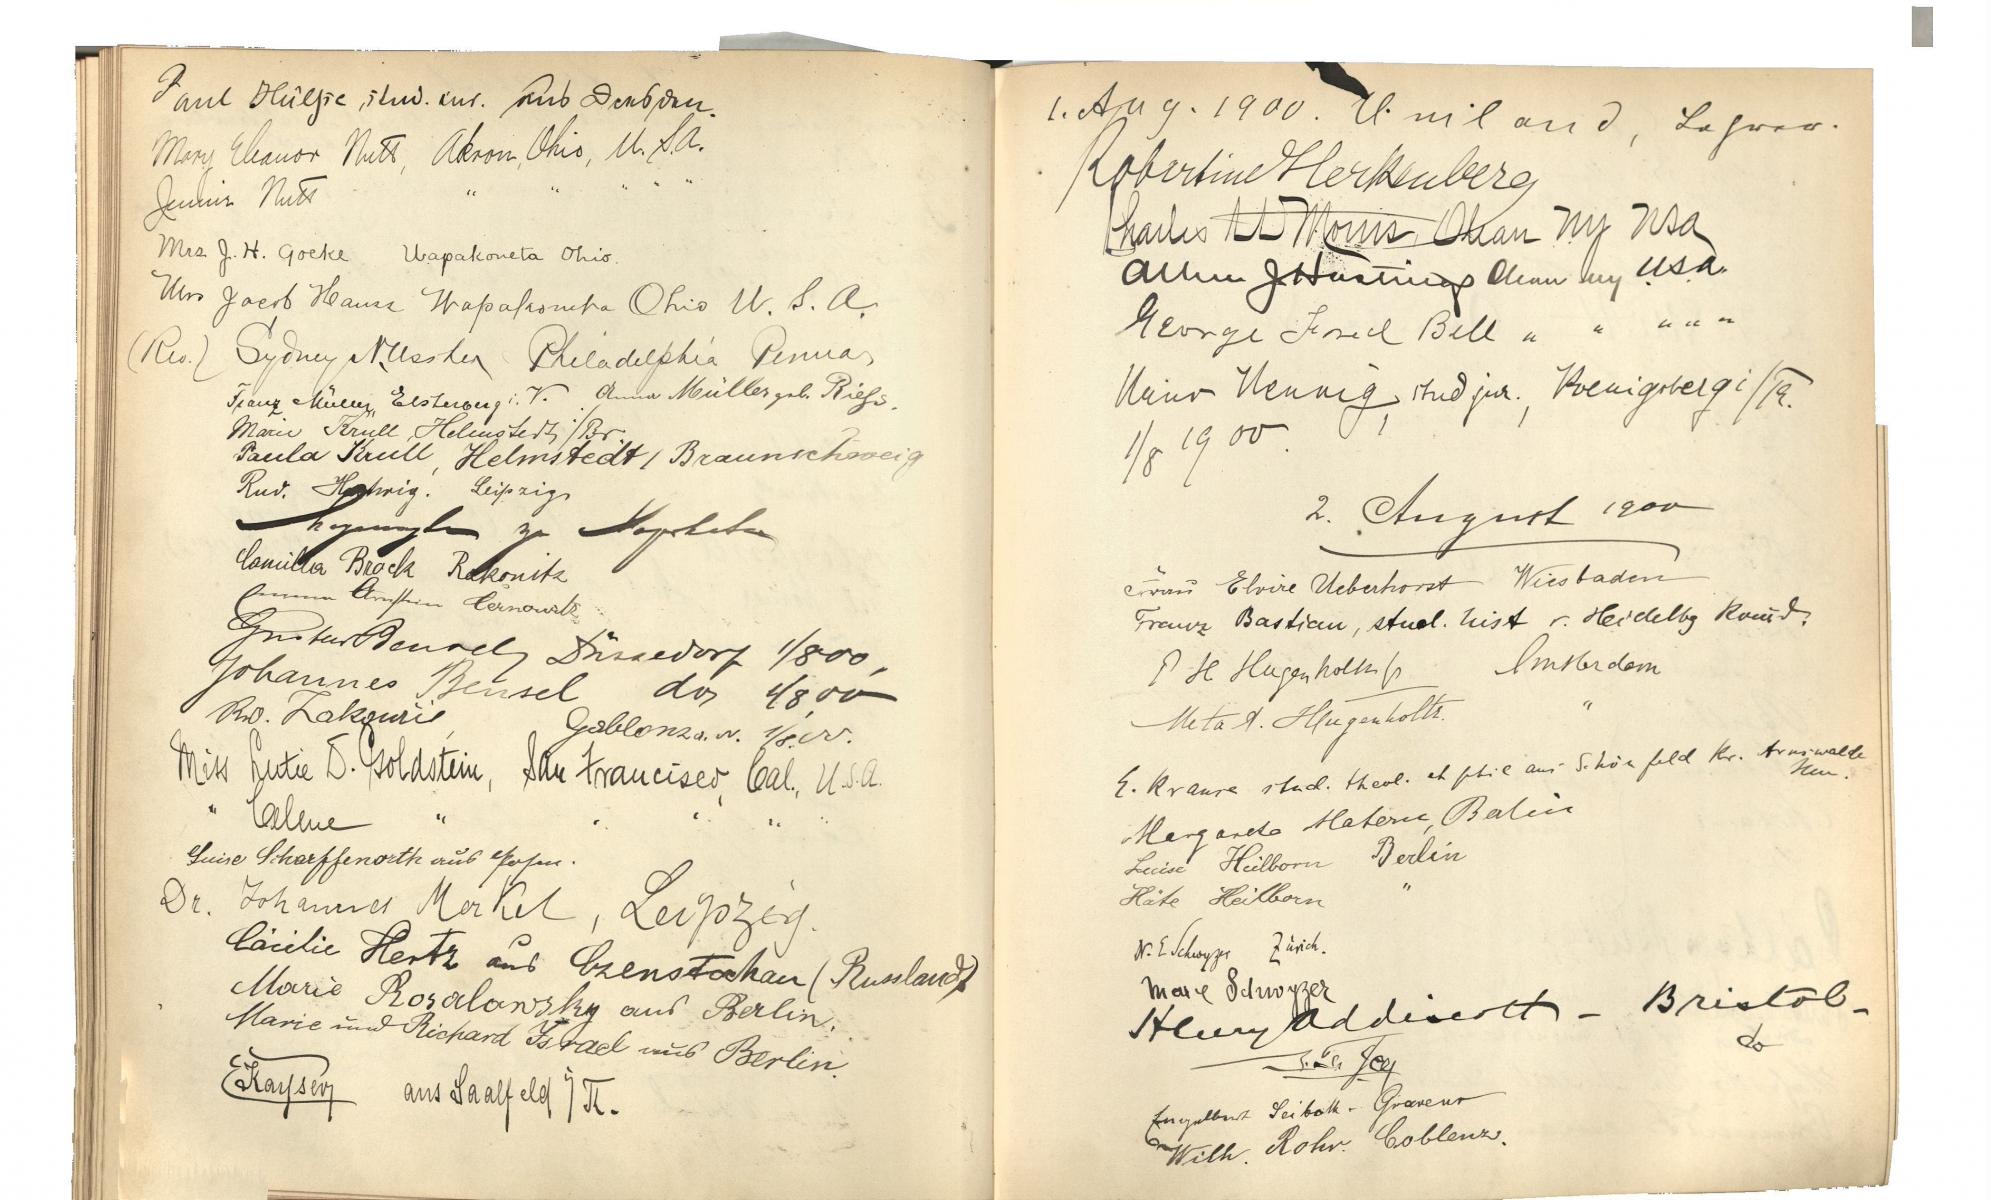 Paul Hülße, stud. jur. aus Dresden.
Mary Eleanor Nutt, Akron, Ohio, U.S.A.
Jennie Nutt " " " " "
Mrs J. H. Goeke Wapakoneta Ohio.
Mrs Jacob Hauss Wapakoneta Ohio U. S. A.
(Rev.) Sydney N. Ussher Philadelphia Penna
Franz Müller, Elsterberg i. V. Anna Müller geb.
Marie Krüll, Helmstedt i/Br.
Paula Krull, Helmstedt / Braunschweig
Rud. Leipzig.
zu
Camilla Brock Rakonitz
Emma Czernowitz
Gustav Bensel, Düsseldorf 1/8 00,
Johannes Bensel do 1/8 00
Gablonz a. N. 1/8. 00.
Miss Lutie D. Goldstein, San Francisco, Cal., U.S.A.
" Celene " " " " "
Luise Scharffenorth aus Posen.
Dr. Johannes Merkel, Leipzig.
Cäcilie Hertz aus Czenstochau (Russland)
Marie Rosalowsky aus Berlin.
Marie und Richard Israel aus Berlin.
E Kayser aus Saalfeld i/Th.
1. Aug. 1900.
Robertine Herkenberg
Charles Morris Olean NY USA
J Hastings Olean NY U.S.A.
George Fred Bell " " " " "
Hennig, stud jur., Koenigsberg i/Pr.
1/8 1900.
2. August 1900
Frau Elvire Ueberhorst Wiesbaden
Franz Bastian, stud. hist v. Heidelbg
P H Hugenholtz jr Amsterdam
Meta A. Hugenholtz. "
E. Krause stud. theol. et phil aus Schönfeld Kr. Arnswalde Nm.
Margarete Matern, Berlin
Luise Heilborn Berlin
Käte Heilborn "
E Schwyzer Zürich.
Marie Schwyzer
Henry Addiscott - Bristol -
do
Engelbert
Wilh. Rohr. Coblenz.